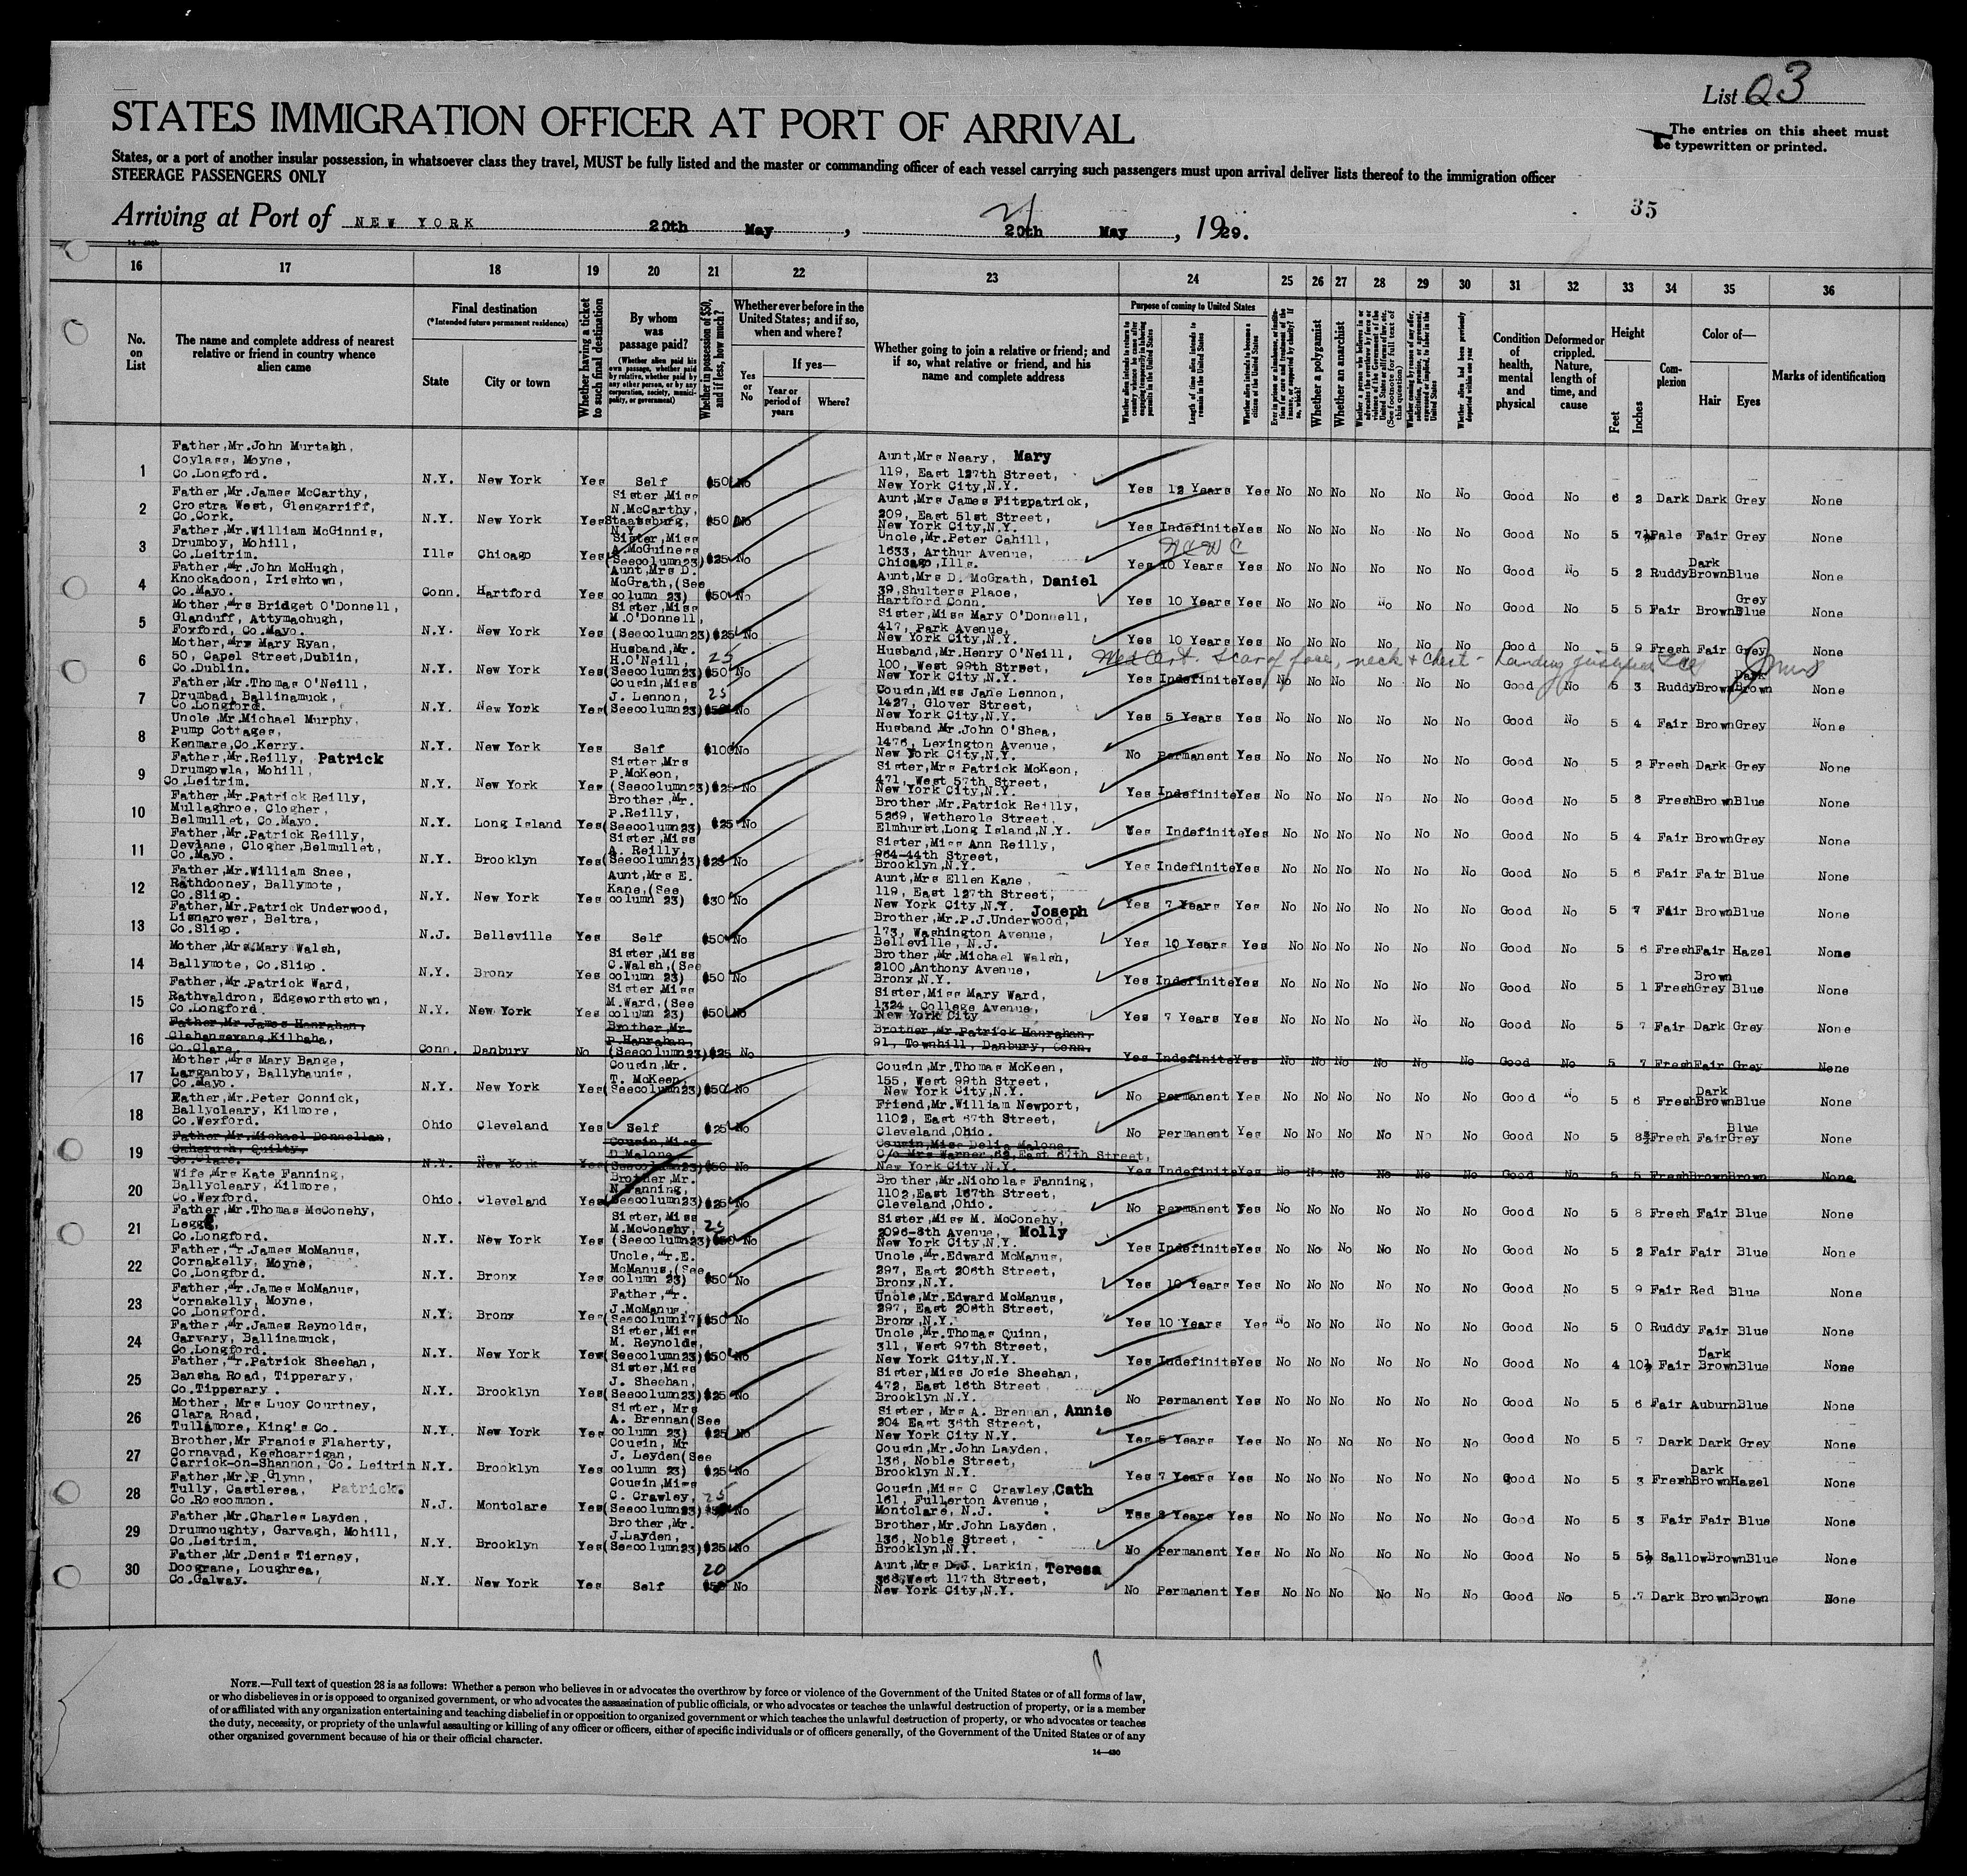 List 23
STATES IMMIGRATION OFFICER AT PORT OF ARRIVAL
The entries on this sheet must
be typewritten or printed.
States, or a port of another insular possession, in whatsoever class they travel, MUST be fully listed and the master or commanding officer of each vessel carrying such passengers must upon arrival deliver lists thereof to the immigration officer
STEERAGE PASSENGERS ONLY
35
Arriving at Port of NEW YORK 20th May, 21 20th May, 1929.
16 17 18 19 20 21 22 23 24 25 26 27 28 29 30 31 32 33 34 35 36
No. on List
The name and complete address of nearest relative or friend in country whence alien came
Final destination
(*Intended future permanent residence)
State
City or town
Whether having a ticket to such final destination
By whom was passage paid?
(Whether alien paid his own passage, whether paid by relative, whether paid by any other person, or by any corporation, society, municipality, or government)
Whether in possession of $50, and if less, how much?
Whether ever before in the United States; and if so, when and where?
Yes or No
If yes—
Year or period of years
Where?
Whether going to join a relative or friend; and if so, what relative or friend, and his name and complete address
Purpose of coming to United States
Length of time alien intends to remain in the United States
Whether alien intends to become a citizen of the United States
Whether a polygamist
Whether an anarchist
Condition of health, mental and physical
Deformed or crippled. Nature, length of time, and cause
Height
Feet
Inches
Complexion
Color of—
Hair
Eyes
Marks of identification
1
Father,Mr.John Murtagh,
Coylass, Moyne,
Co.Longford.
N.Y. New York Yes Self $50 No
Aunt,Mrs Neary, Mary
119, East 127th Street,
New York City,N.Y.
Yes 12 Years Yes No No No No No No Good No 6 2 Dark Dark Grey None
2
Father,Mr.James McCarthy,
Crostra West, Glengarriff,
Co.Cork.
N.Y. New York Yes
Sister,Miss
N.McCarthy,
Staatsburg,
N.Y.
$50 No
Aunt,Mrs James Fitzpatrick,
209, East 51st Street,
New York City,N.Y.
Yes Indefinite Yes No No No No No No Good No 5 7½ Pale Fair Grey None
3
Father,Mr.William McGinnis,
Drumboy, Mohill,
Co.Leitrim.
Ills Chicago Yes
Sister,Miss
A.McGuiness
(Seecolumn 23)
$25 No
Uncle,Mr.Peter Cahill,
1633, Arthur Avenue,
Chicago,Ills.
Yes 10 Years Yes No No No No No No Good No 5 2 Ruddy Dark Brown Blue None
4
Father,Mr.John McHugh,
Knockadoon, Irishtown,
Co.Mayo.
Conn. Hartford Yes
Aunt,Mrs D.
McGrath,(See
column 23)
$50 No
Aunt,Mrs D. McGrath, Daniel
39,Shulters Place,
Hartford Conn.
Yes 10 Years Yes No No No No No No Good No 5 5 Fair Brown Grey Blue None
5
Mother,Mrs Bridget O'Donnell,
Glanduff, Attymachugh,
Foxford, Co.Mayo.
N.Y. New York Yes
Sister,Miss
M.O'Donnell,
(Seecolumn23)
$25 No
Sister,Miss Mary O'Donnell,
417, Park Avenue,
New York City,N.Y.
Yes 10 Years Yes No No No No No No Good No 5 9 Fresh Fair Grey None
Med Cert. Scar of face, neck + chest - Landing
6
Mother,Mrs Mary Ryan,
50, Capel Street,Dublin,
Co.Dublin.
N.Y. New York Yes
Husband,Mr.
H.O'Neill,
(Seecolumn 23)
25
$50 No
Husband,Mr.Henry O'Neill,
100, West 99th Street,
New York City,N.Y.
Yes Indefinite Yes No No No No No No Good No 5 3 Ruddy Brown Dark Brown None
7
Father,Mr.Thomas O'Neill,
Drumbad, Ballinamuck,
Co.Longford.
N.Y. New York Yes
Cousin,Miss
J. Lennon,
(Seecolumn23)
25
$50 No
Cousin,Miss Jane Lennon,
1427, Glover Street,
New York City,N.Y.
Yes 5 Years Yes No No No No No No Good No 5 4 Fair Brown Grey None
8
Uncle,Mr.Michael Murphy,
Pump Cottages,
Kenmare,Co.Kerry.
N.Y. New York Yes Self $100 No
Husband Mr.John O'Shea,
1476, Lexington Avenue,
New York City,N.Y.
No Permanent Yes No No No No No No Good No 5 2 Fresh Dark Grey None
9
Father,Mr.Reilly, Patrick
Drumgowla, Mohill,
Co.Leitrim.
N.Y. New York Yes
Sister,Mrs
P.McKeon,
(Seecolumn23)
$25 No
Sister,Mrs Patrick McKeon,
471, West 57th Street,
New York City,N.Y.
Yes Indefinite Yes No No No No No No Good No 5 8 Fresh Brown Blue None
10
Father,Mr.Patrick Reilly,
Mullaghroe, Clogher,
Belmullet, Co.Mayo.
N.Y. Long Island Yes
Brother,Mr.
P.Reilly,
(Seecolumn23)
$25 No
Brother,Mr.Patrick Reilly,
5269, Wetherole Street,
Elmhurst,Long Island,N.Y.
Yes Indefinite Yes No No No No No No Good No 5 4 Fair Brown Grey None
11
Father,Mr.Patrick Reilly,
Devlane, Clogher,Belmullet,
Co.Mayo.
N.Y. Brooklyn Yes
Sister,Miss
A. Reilly,
(Seecolumn 23)
$25 No
Sister,Miss Ann Reilly,
964-44th Street,
Brooklyn,N.Y.
Yes Indefinite Yes No No No No No No Good No 5 6 Fair Fair Blue None
12
Father,Mr.William Snee,
Rathdooney, Ballymote,
Co.Sligo.
N.Y. New York Yes
Aunt,Mrs E.
Kane,(See
column 23)
$30 No
Aunt,Mrs Ellen Kane,
119, East 127th Street,
New York City,N.Y.
Yes 7 Years Yes No No No No No No Good No 5 7 Fair Brown Blue None
13
Father,Mr.Patrick Underwood,
Lisnarower, Beltra,
Co.Sligo.
N.J. Belleville Yes Self $50 No
Joseph
Brother,Mr.P.J.Underwood,
173, Washington Avenue,
Belleville, N.J.
Yes 10 Years Yes No No No No No No Good No 5 6 Fresh Fair Hazel None
14
Mother,Mrs Mary Walsh,
Ballymote, Co.Sligo.
N.Y. Bronx Yes
Sister,Miss
C.Walsh,(See
column 23)
$50 No
Brother,Mr.Michael Walsh,
2100,Anthony Avenue,
Bronx,N.Y.
Yes Indefinite Yes No No No No No No Good No 5 1 Fresh Brown Grey Blue None
15
Father,Mr.Patrick Ward,
Rathvaldron, Edgeworthstown,
Co.Longford.
N.Y. New York Yes
Sister Miss
M.Ward,(See
column 23)
$50 No
Sister,Miss Mary Ward,
1324, College Avenue,
New York City
Yes 7 Years Yes No No No No No No Good No 5 7 Fair Dark Grey None
16
Father,Mr.James Hanrahan,
Clahansevane,Kilbaha,
Co.Clare.
Conn. Danbury No
Brother,Mr.
P.Hanrahan,
(Seecolumn 23)
$25 No
Brother,Mr.Patrick Hanrahan,
91, Townhill, Danbury, Conn.
Yes Indefinite Yes No No No No No No Good No 5 7 Fresh Fair Grey None
17
Mother,Mrs Mary Bange,
Larganboy, Ballyhaunis,
Co.Mayo.
N.Y. New York Yes
Cousin,Mr.
T. McKeen,
(Seecolumn23)
$50 No
Cousin,Mr.Thomas McKeen,
155, West 99th Street,
New York City,N.Y.
No Permanent Yes No No No No No No Good No 5 6 Fresh Dark Brown Blue None
18
Father,Mr.Peter Connick,
Ballycleary, Kilmore,
Co.Wexford.
Ohio Cleveland Yes Self $25 No
Friend,Mr.William Newport,
1102, East 67th Street,
Cleveland,Ohio.
No Permanent Yes No No No No No No Good No 5 8½ Fresh Fair Blue Grey None
19
Father,Mr.Michael Donnellan,
Caherush, Quilty,
Co.Clare.
N.Y. New York Yes
Cousin,Miss
D.Malone,
(Seecolumn 23)
$50 No
Cousin,Miss Delia Malone,
C/o Mrs Warner,62,East 67th Street,
New York City,N.Y.
Yes Indefinite Yes No No No No No No Good No 5 5 Fresh Brown Brown None
20
Wife,Mrs Kate Fanning,
Ballycleary, Kilmore,
Co.Wexford.
Ohio. Cleveland Yes
Brother,Mr.
N.Fanning,
(Seecolumn23)
$25 No
Brother,Mr.Nicholas Fanning,
1102,East 167th Street,
Cleveland,Ohio.
No Permanent Yes No No No No No No Good No 5 8 Fresh Fair Blue None
21
Father,Mr.Thomas McConehy,
Legga,
Co.Longford.
N.Y. New York Yes
Sister,Miss
M.McConehy,
(Seecolumn 23)
25
$50 No
Sister,Miss M. McConehy,
2096-8th Avenue, Molly
New York City,N.Y.
Yes Indefinite Yes No No No No No No Good No 5 2 Fair Fair Blue None
22
Father,Mr.James McManus,
Cornakelly, Moyne,
Co.Longford.
N.Y. Bronx Yes
Uncle,Mr.E.
McManus,(See
column 23)
$50 No
Uncle,Mr.Edward McManus,
297, East 206th Street,
Bronx,N.Y.
Yes 10 Years Yes No No No No No No Good No 5 9 Fair Red Blue None
23
Father,Mr.James McManus,
Cornakelly, Moyne,
Co.Longford.
N.Y. Bronx Yes
Father,Mr.
J.McManus,
(Seecolumn17)
$50 No
Uncle,Mr.Edward McManus,
297, East 206th Street,
Bronx,N.Y.
Yes 10 Years Yes No No No No No No Good No 5 0 Ruddy Fair Blue None
24
Father,Mr.James Reynolds,
Garvary, Ballinamuck,
Co.Longford.
N.Y. New York Yes
Sister,Miss
M. Reynolds,
(Seecolumn23)
$50 No
Uncle,Mr.Thomas Quinn,
311, West 97th Street,
New York City,N.Y.
Yes Indefinite Yes No No No No No No Good No 4 10½ Fair Dark Brown Blue None
25
Father,Mr.Patrick Sheehan,
Bansha Road, Tipperary,
Co.Tipperary.
N.Y. Brooklyn Yes
Sister,Miss
J. Sheehan,
(Seecolumn 23)
$25 No
Sister,Miss Josie Sheehan,
472, East 16th Street
Brooklyn.N.Y.
No Permanent Yes No No No No No No Good No 5 6 Fair Auburn Blue None
26
Mother, Mrs Lucy Courtney,
Clara Road,
Tullamore, King's Co.
N.Y. New York Yes
Sister, Mrs
A. Brennan(See
column 23)
$25 No
Sister, Mrs A. Brennan, Annie
204 East 36th Street,
New York City N.Y.
Yes 5 Years Yes No No No No No No Good No 5 7 Dark Dark Grey None
27
Brother,Mr Francis Flaherty,
Cornavad, Keshcarrigan,
Carrick-on-Shannon, Co. Leitrim
N.Y. Brooklyn Yes
Cousin, Mr
J. Leyden(See
column 23)
$25 No
Cousin,Mr.John Layden,
136, Noble Street,
Brooklyn N.Y.
Yes 7 Years Yes No No No No No No Good No 5 3 Fresh Dark Brown Hazel None
28
Father,Mr.P.Glynn,
Tully, Castlerea, Patrick.
Co.Roscommon.
N.J. Montclare Yes
Cousin,Miss
C. Crawley,
(Seecolumn23)
25
$50 No
Cousin,Miss C Crawley,Cath
161, Fullerton Avenue,
Montclare, N.J.
Yes 2 Years Yes No No No No No No Good No 5 3 Fair Fair Blue None
29
Father,Mr.Charles Layden,
Drumnoughty, Garvagh, Mohill,
Co.Leitrim.
N.Y. Brooklyn Yes
Brother,Mr.
J.Layden,
(Seecolumn23)
$25 No
Brother,Mr.John Layden,
136, Noble Street,
Brooklyn,N.Y.
No Permanent Yes No No No No No No Good No 5 5½ Sallow Brown Blue None
30
Father,Mr.Denis Tierney,
Doograne, Loughrea,
Co.Galway.
N.Y. New York Yes Self
20
$50 No
Aunt,Mrs D.J. Larkin, Teresa
368,West 117th Street,
New York City,N.Y.
No Permanent Yes No No No No No No Good No 5 7 Dark Brown Brown None
NOTE.—Full text of question 28 is as follows: Whether a person who believes in or advocates the overthrow by force or violence of the Government of the United States or of all forms of law,
or who disbelieves in or is opposed to organized government, or who advocates the assassination of public officials, or who advocates or teaches the unlawful destruction of property, or is a member
of or affiliated with any organization entertaining and teaching disbelief in or opposition to organized government or which teaches the unlawful destruction of property, or who advocates or teaches
the duty, necessity, or propriety of the unlawful assaulting or killing of any officer or officers, either of specific individuals or of officers generally, of the Government of the United States or of any
other organized government because of his or their official character.
14—430